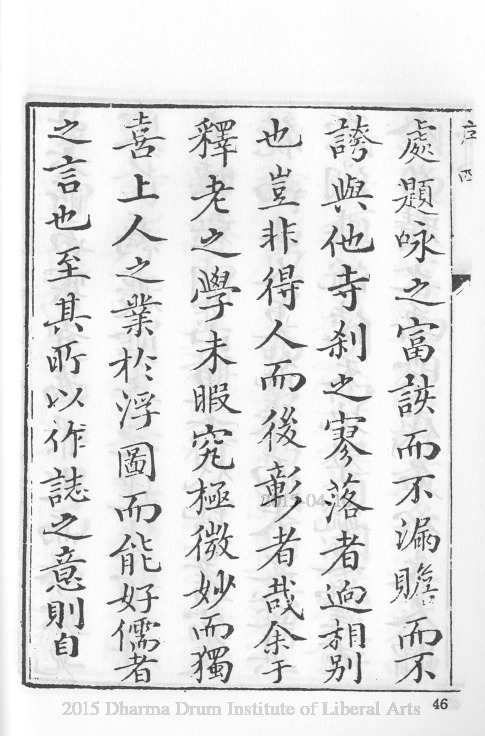 序 四
處題咏之富詼而不漏贍而不
誇與他寺刹之寥落者逈相別
也豈非得人而後彰者哉余于
釋老之學未暇究極微妙而獨
喜上人之業於浮圖而能好儒者
之言也至其所以作誌之意則自
46
2015 Dharma Drum Institute of Liberal Arts